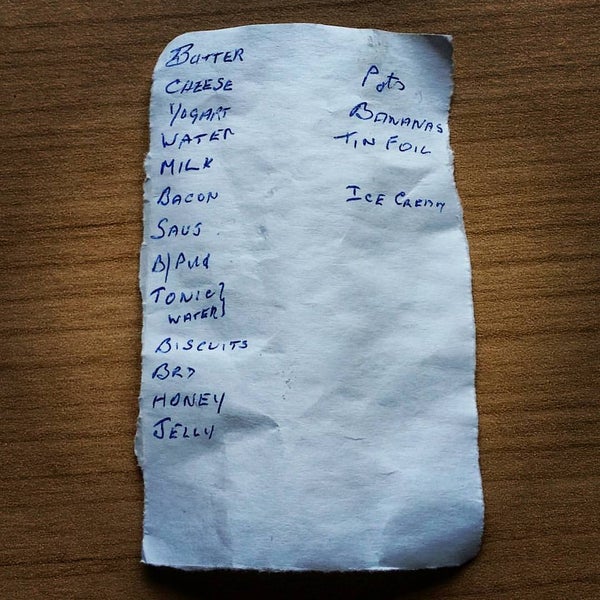 BUTTER
CHEESE
YOGART
WATER
MILK
BACON
SAUS
B/PUD
TONIC }
WATER }
BISCUITS
BRD
HONEY
JELLY
Pots
BANANAS
TIN FOIL
ICE CREAM